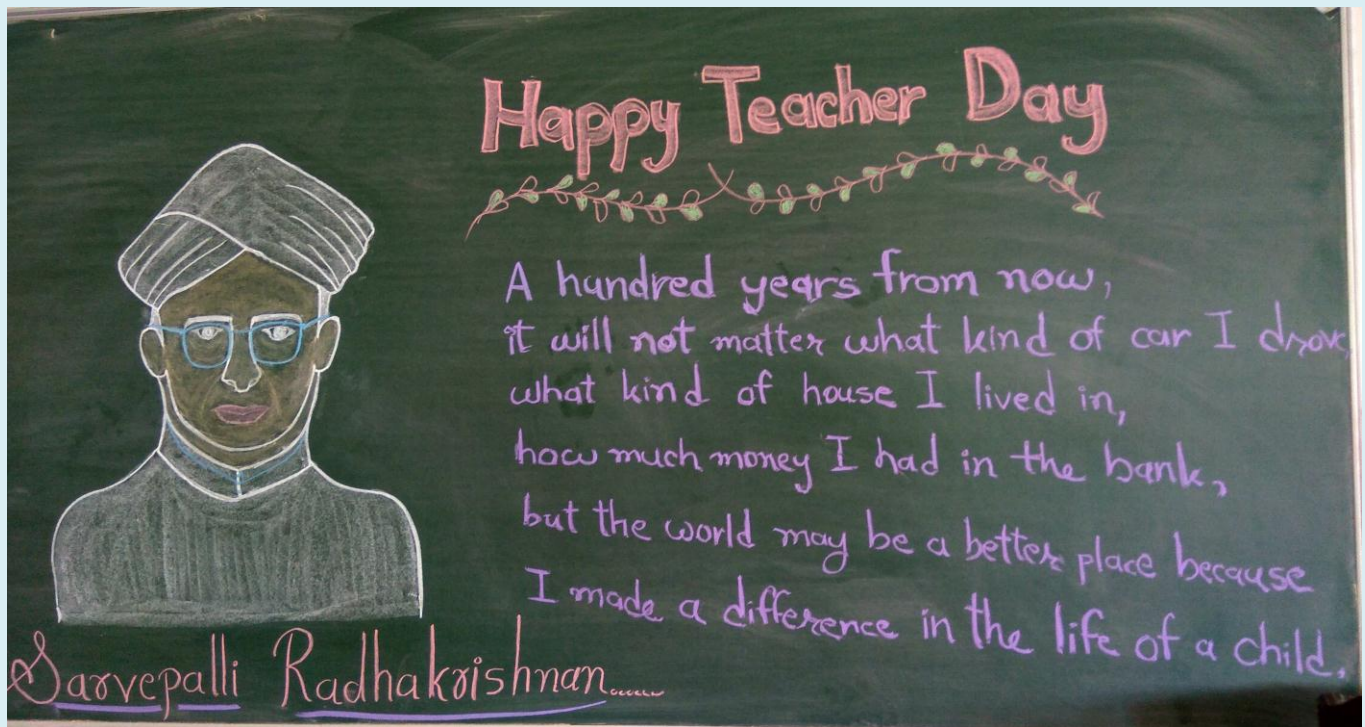 Happy Teacher Day
A hundred years from now,
it will not matter what kind of car I drove,
what kind of house I lived in,
how much money I had in the bank,
but the world may be a better place because
I made a difference in the life of a child.
Sarvepalli Radhakrishnan......